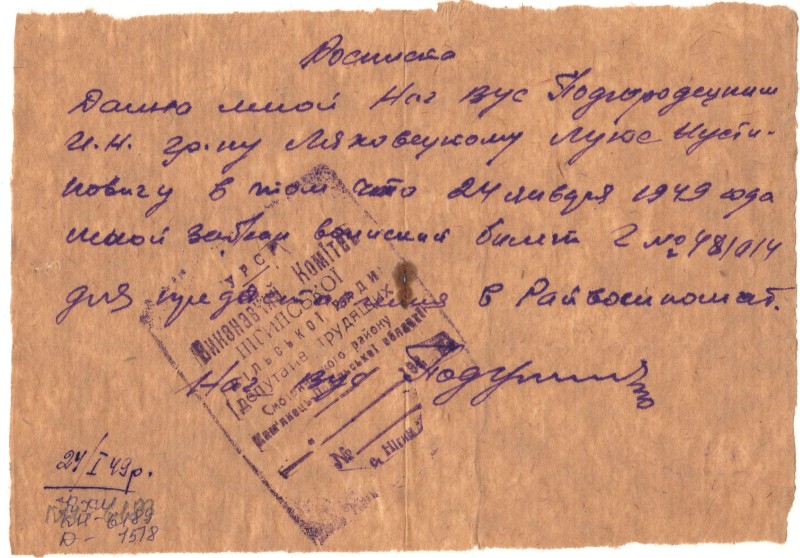 Росписка
Дально мной Нач ВУС Подгородецким
И.Н. гр-ну Ляховецкому Луке Нусти-
новичу в том что 24 января 1949 года
мной забран воинский билет Г № 481014
для предоставления в Райвоенкомат.
Нач ВУС
УРСР
Виконавчий Комітет
сільської Ради
депутатів трудящих
району
Кам'янець-Подільської області
194
№
24/I 49р.
КН-6189
Д- 1518